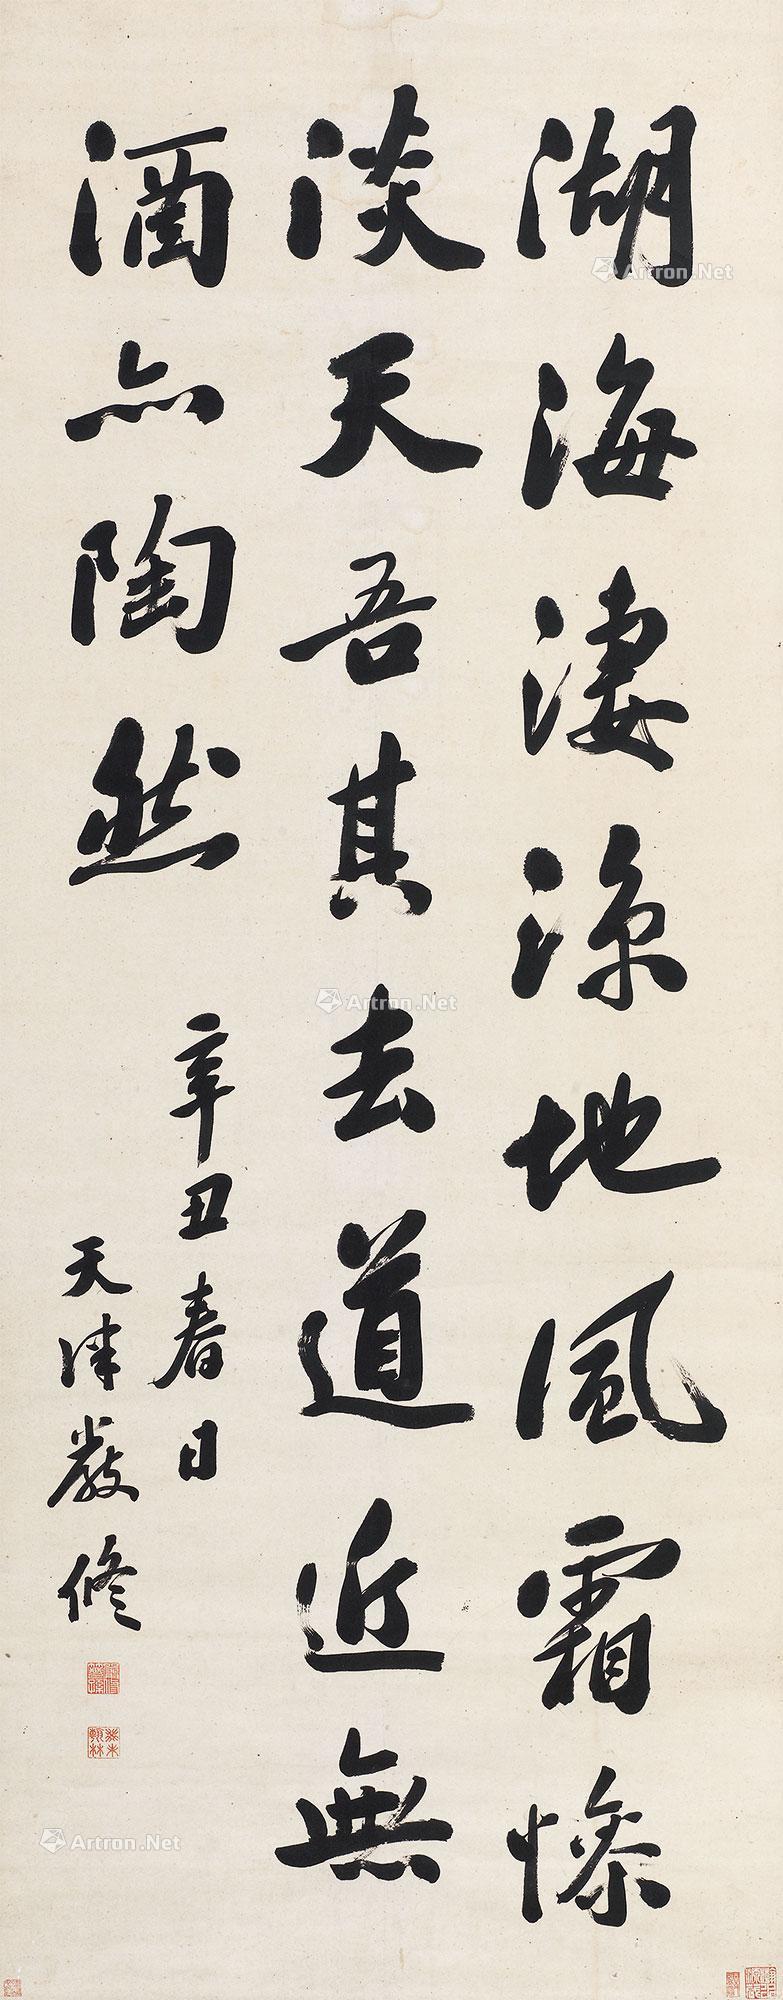 湖海凄涼地風霜慘
淡天吾其去道近無
酒亦陶然
辛丑春日
天津嚴修
癸未
翰林
Artron.Net
Artron.Net
Artron.Net